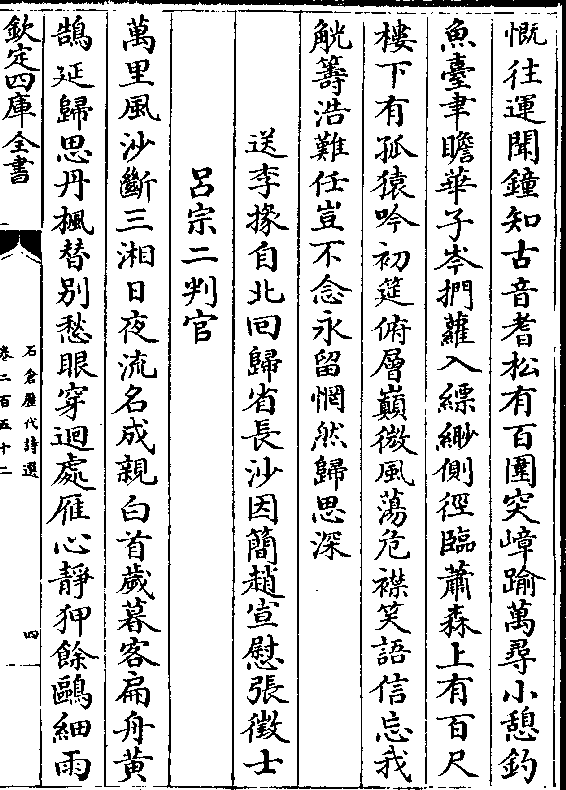 慨往運聞鐘知古音耆松有百圍突嶂踰萬尋小憩釣
魚臺聿瞻華子岑捫蘿入縹緲側徑臨蕭森上有百尺
樓下有孤猿吟初筵俯層巔微風蕩危襟笑語信忘我
觥籌浩難任豈不念永留惘然歸思深
送李掾自北回歸省長沙因簡趙宣慰張徵士
呂宗二判官
萬里風沙斷三湘日夜流名成親白首歲暮客扁舟黃
鵠延歸思丹楓替別愁眼穿迴處雁心靜狎餘鷗細雨
欽定四庫全書
石倉歷代詩選
卷二百五十二
四